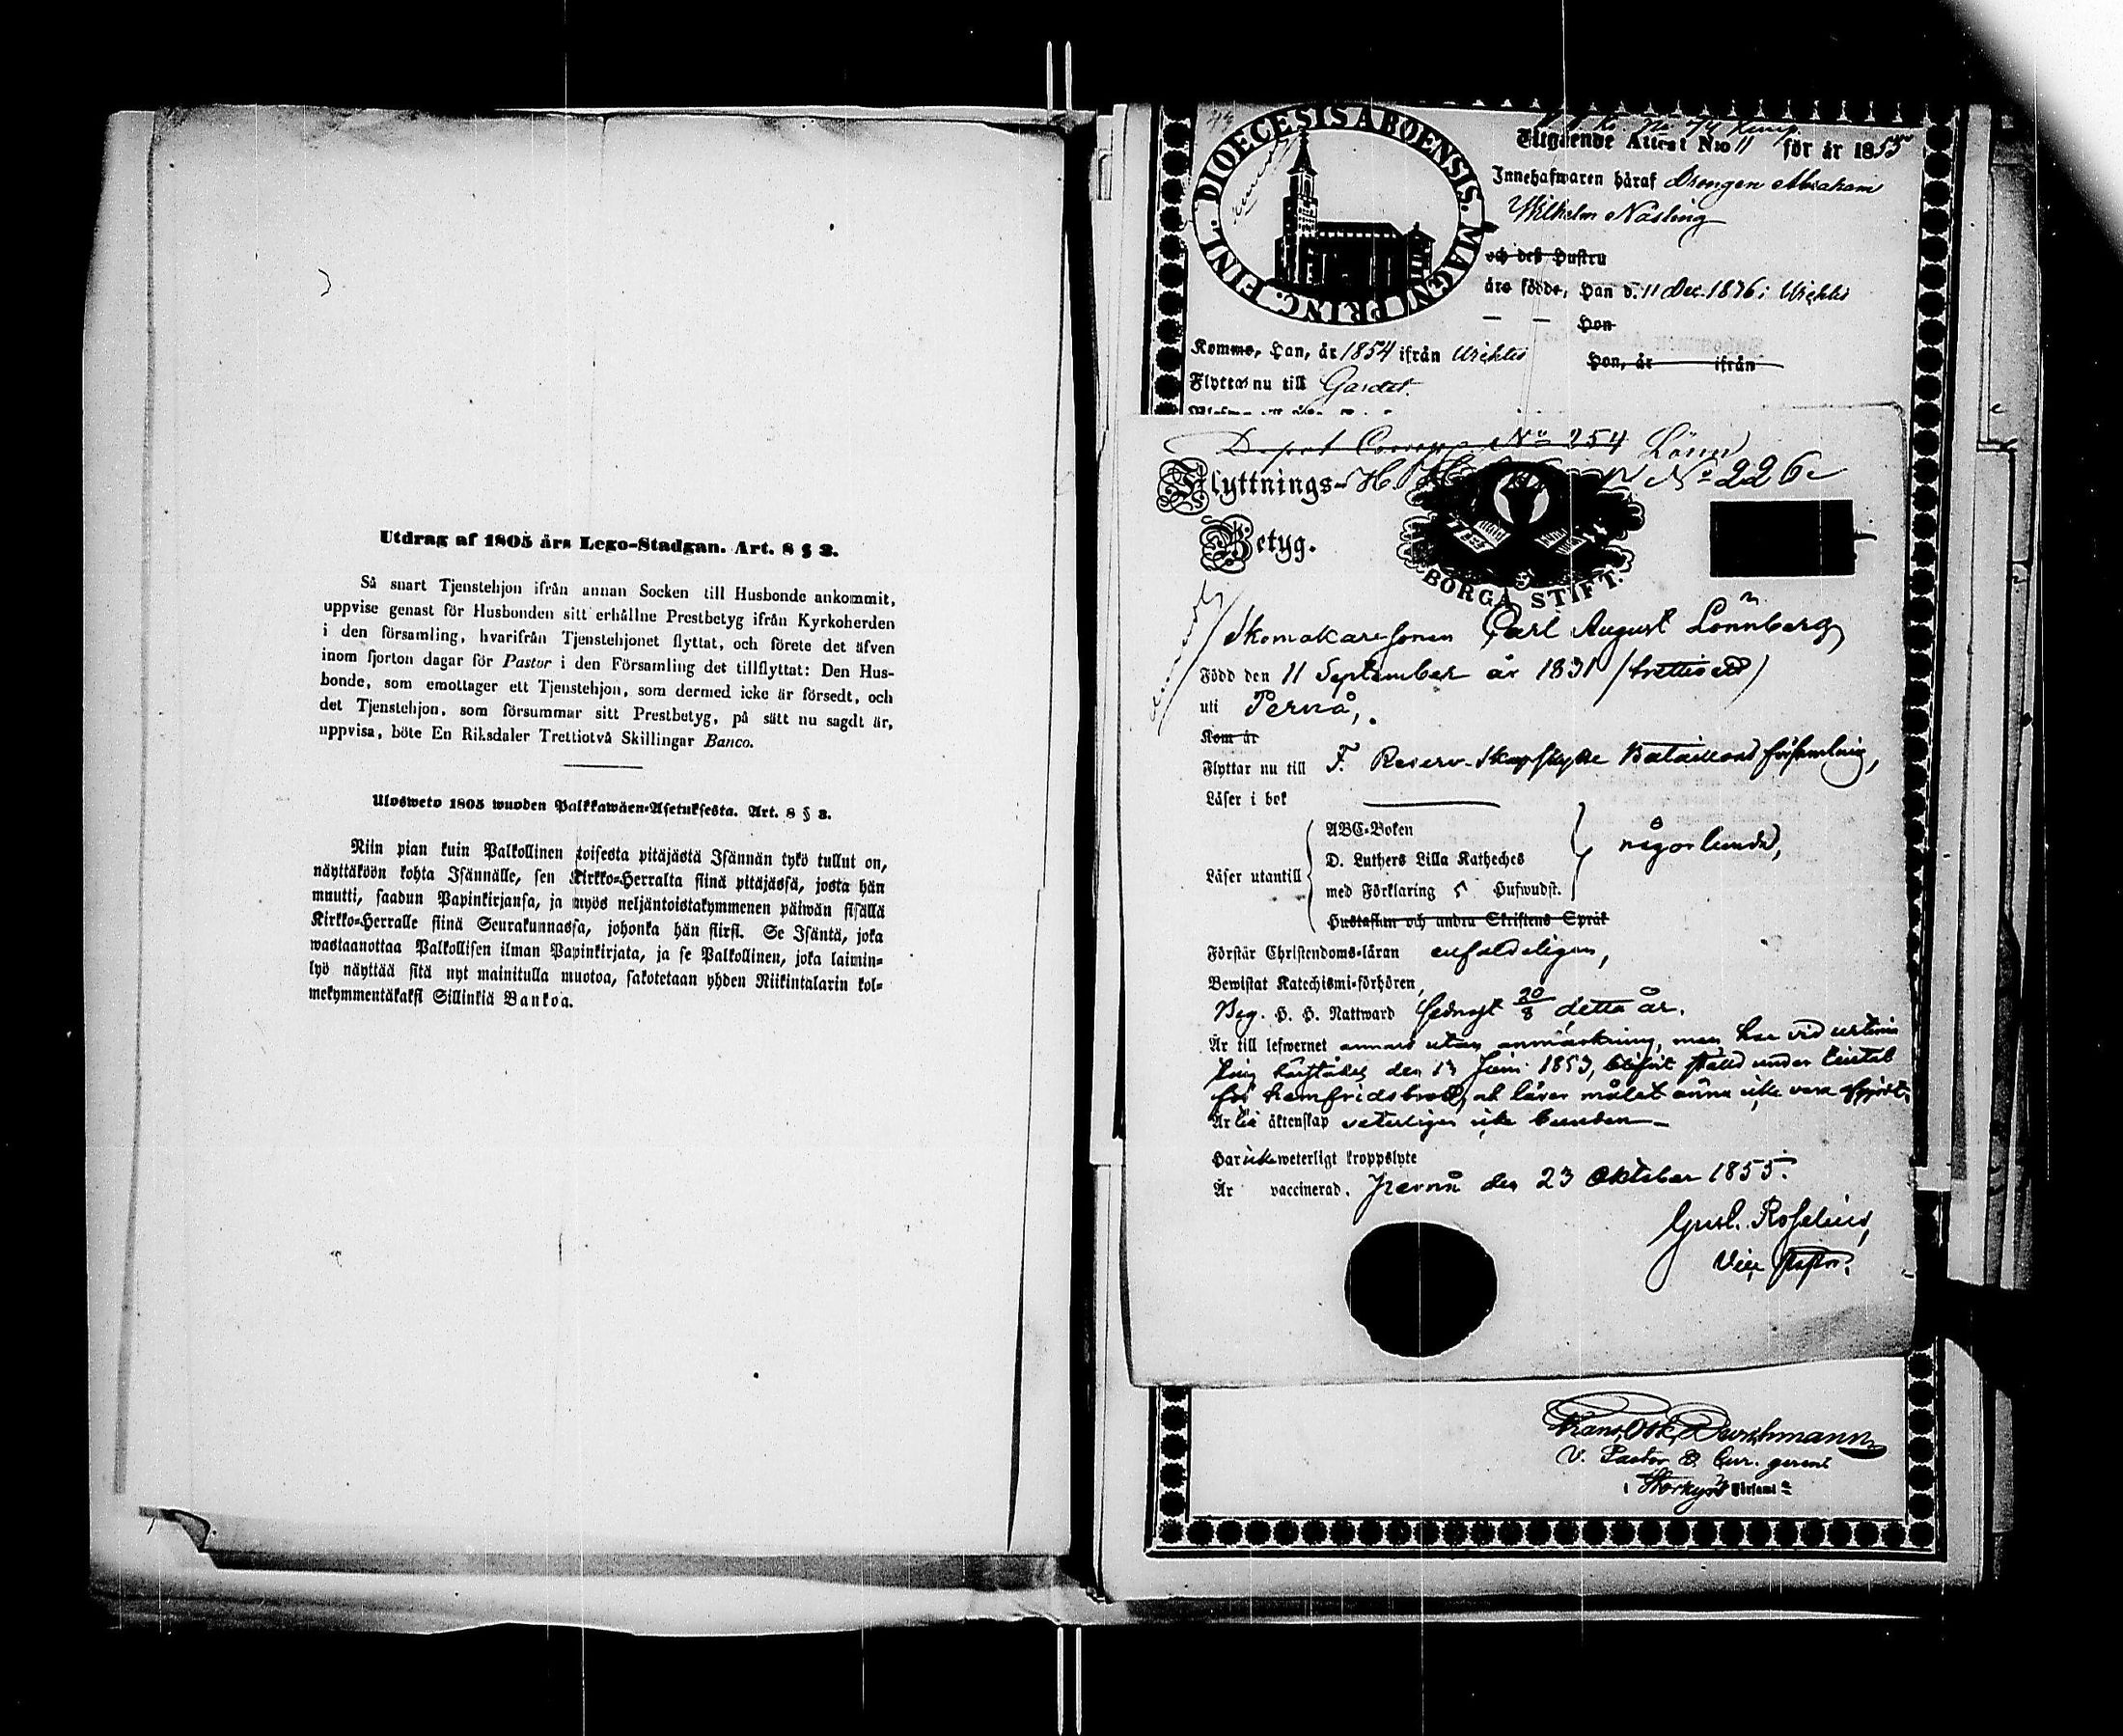 Utdrag af 1805 års Lego-Stadgan. Art. 8 § 3.
Så snart Tjenstehjon ifrån annan Socken till Husbonde ankommit,
uppvise genast för Husbonden sitt erhållne Prestbetyg ifrån Kyrkoherden
i den församling, hvarifrån Tjenstehjonet flyttat, och förete det äfven
inom fjorton dagar för Pastor i den Församling det tillflyttat: Den Hus-
bonde, som emottager ett Tjenstehjon, som dermed icke är försedt, och
det Tjenstehjon, som försummar sitt Prestbetyg, på sätt nu sagdt är,
uppvisa, böte En Riksdaler Trettiotvå Skillingar Banco.
Ulosweto 1805 wuoden Palkkawäen-Asetuksesta. Art. 8 § 3.
Niin pian kuin Palkollinen toisesta pitäjästä Isännän tykö tullut on,
näyttäköön kohta Isännälle, sen Kirkko-Herralta siinä pitäjässä, josta hän
muutti, saadun Papinkirjansa, ja myös neljäntoistakymmenen päiwän sisällä
Kirkko-Herralle siinä Seurakunnassa, johonka hän siirsi. Se Isäntä, joka
wastaanottaa Palkollisen ilman Papinkirjata, ja se Palkollinen, joka laimin-
lyö näyttää sitä nyt mainitulla muotoa, sakotetaan yhden Riikintalarin kol-
mekymmentäkaksi Sillinkiä Bankoa.
DIOECESIS ABOENSIS. MAGN. PRINC. FINL.
Utgående Attest N:o 11 för år 1855
Innehafwaren häraf Drengen Abraham
Wilhelm Näsling
och deß Hustru
äro födde, Han d. 11 Dec. 1836 i Wichtis
Hon
Kommo, Han, år 1854 ifrån Wichtis Hon, år ifrån
Flyttar nu till Gardet.
No 254 Lönn
Flyttnings- No 226
Betyg.
BORGÅ STIFT.
Skomakaresonen Carl August Lönnberg
Född den 11 September år 1831 (trettioett)
uti Pernå,
Kom år
Flyttar nu till F. Reserv-Skarpskytte Bataillons församling,
Läser i bok
ABC-Boken
D. Luthers Lilla Katheches
Läser utantill någorlunda,
med Förklaring 5 Hufwudst.
Hustaflan och andra Skriftens Språk
Förstår Christendoms-läran enfaldeligen,
Bewistat Katechismi-förhören,
Beg. H. H. Nattward sednast 20/8 detta år.
Är till lefwernet annars utan anmärkning, men har vid urtima
ting härstädes den 13 Juni 1853, blifvit ställd under tilltal
för hemfridsbrott, och lärer målet ännu icke vara afgjordt.
Är till äktenskap veterligen icke bunden
Har icke weterligt kroppslyte
Är vaccinerad. Pernå den 23 Oktober 1855.
Gust. Roselius,
Vice Pastor.
V. Pastor & Cur. gerens
i Storkyro Församl:g